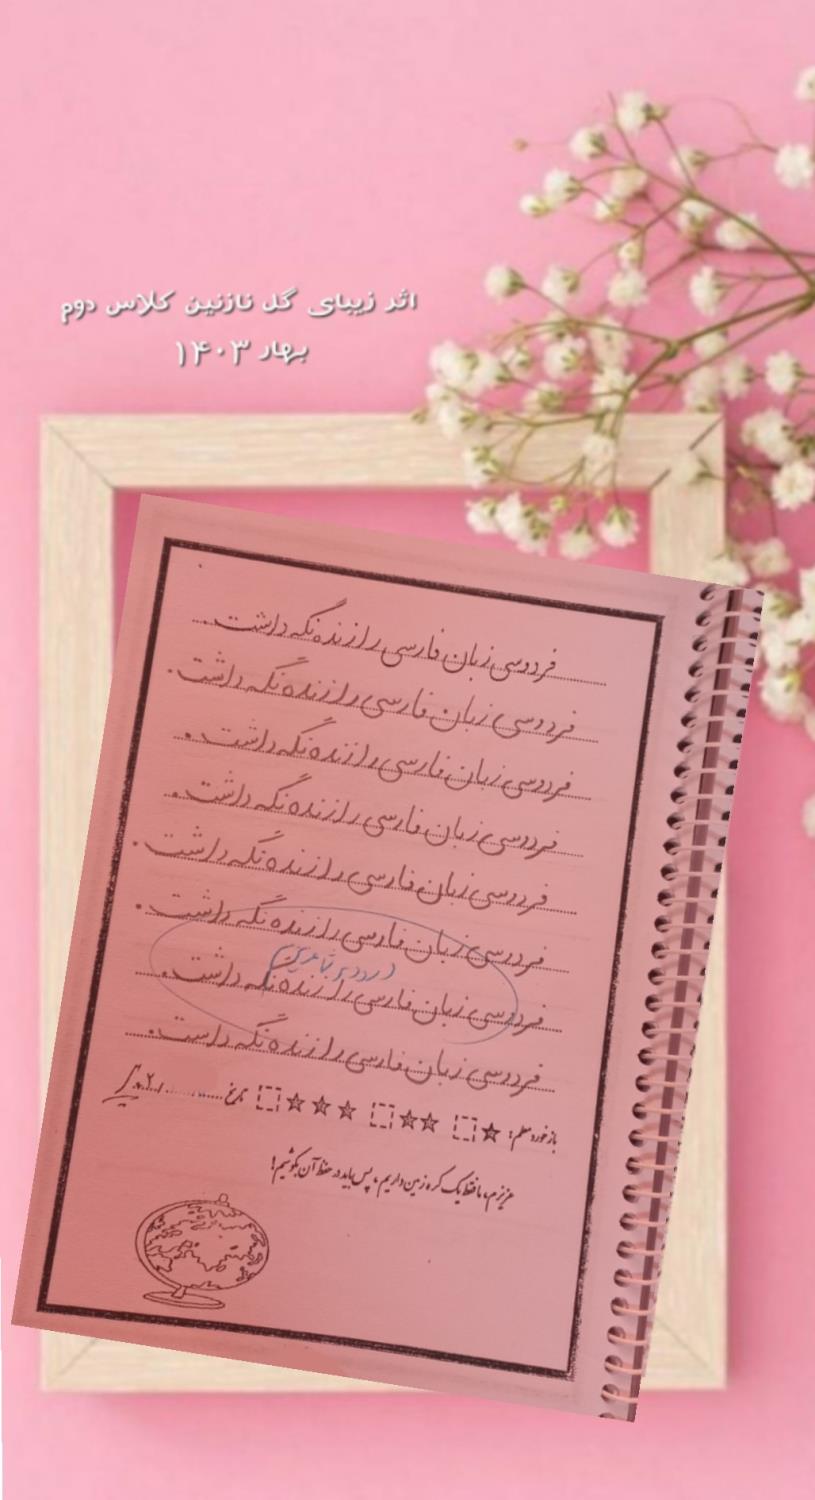 اثر زیبای گل نازنین کلاس دوم
بهار ۱۴۰۳
فردوسی زبان فارسی را زنده نگه داشت.
فردوسی زبان فارسی را زنده نگه داشت.
فردوسی زبان فارسی را زنده نگه داشت.
فردوسی زبان فارسی را زنده نگه داشت.
فردوسی زبان فارسی را زنده نگه داشت.
فردوسی زبان فارسی را زنده نگه داشت.
فردوسی زبان فارسی را زنده نگه داشت.
فردوسی زبان فارسی را زنده نگه داشت.
بازخورد معلم: تاریخ
عزیزم، ما فقط یک کره زمین داریم، پس باید در حفظ آن بکوشیم!